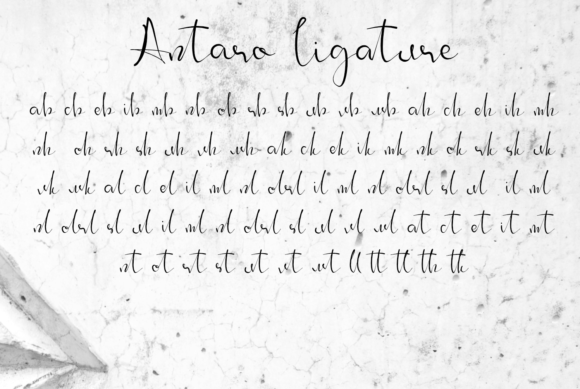 Antaro ligature
ab cb eb ib mb nb ob rb sb ub vb wb ah ch eh ih mh
nh oh rh sh uh vh wh ak ck ek ik mk nk ok rk sk uk
vk wk al cl el il ml nl olrl il ml nl olrl sl ul il ml
nl olrl sl ul il ml nl olrl sl ul vl wl at ct et it mt
nt ot rt st ut vt wt ll tt tl th tk